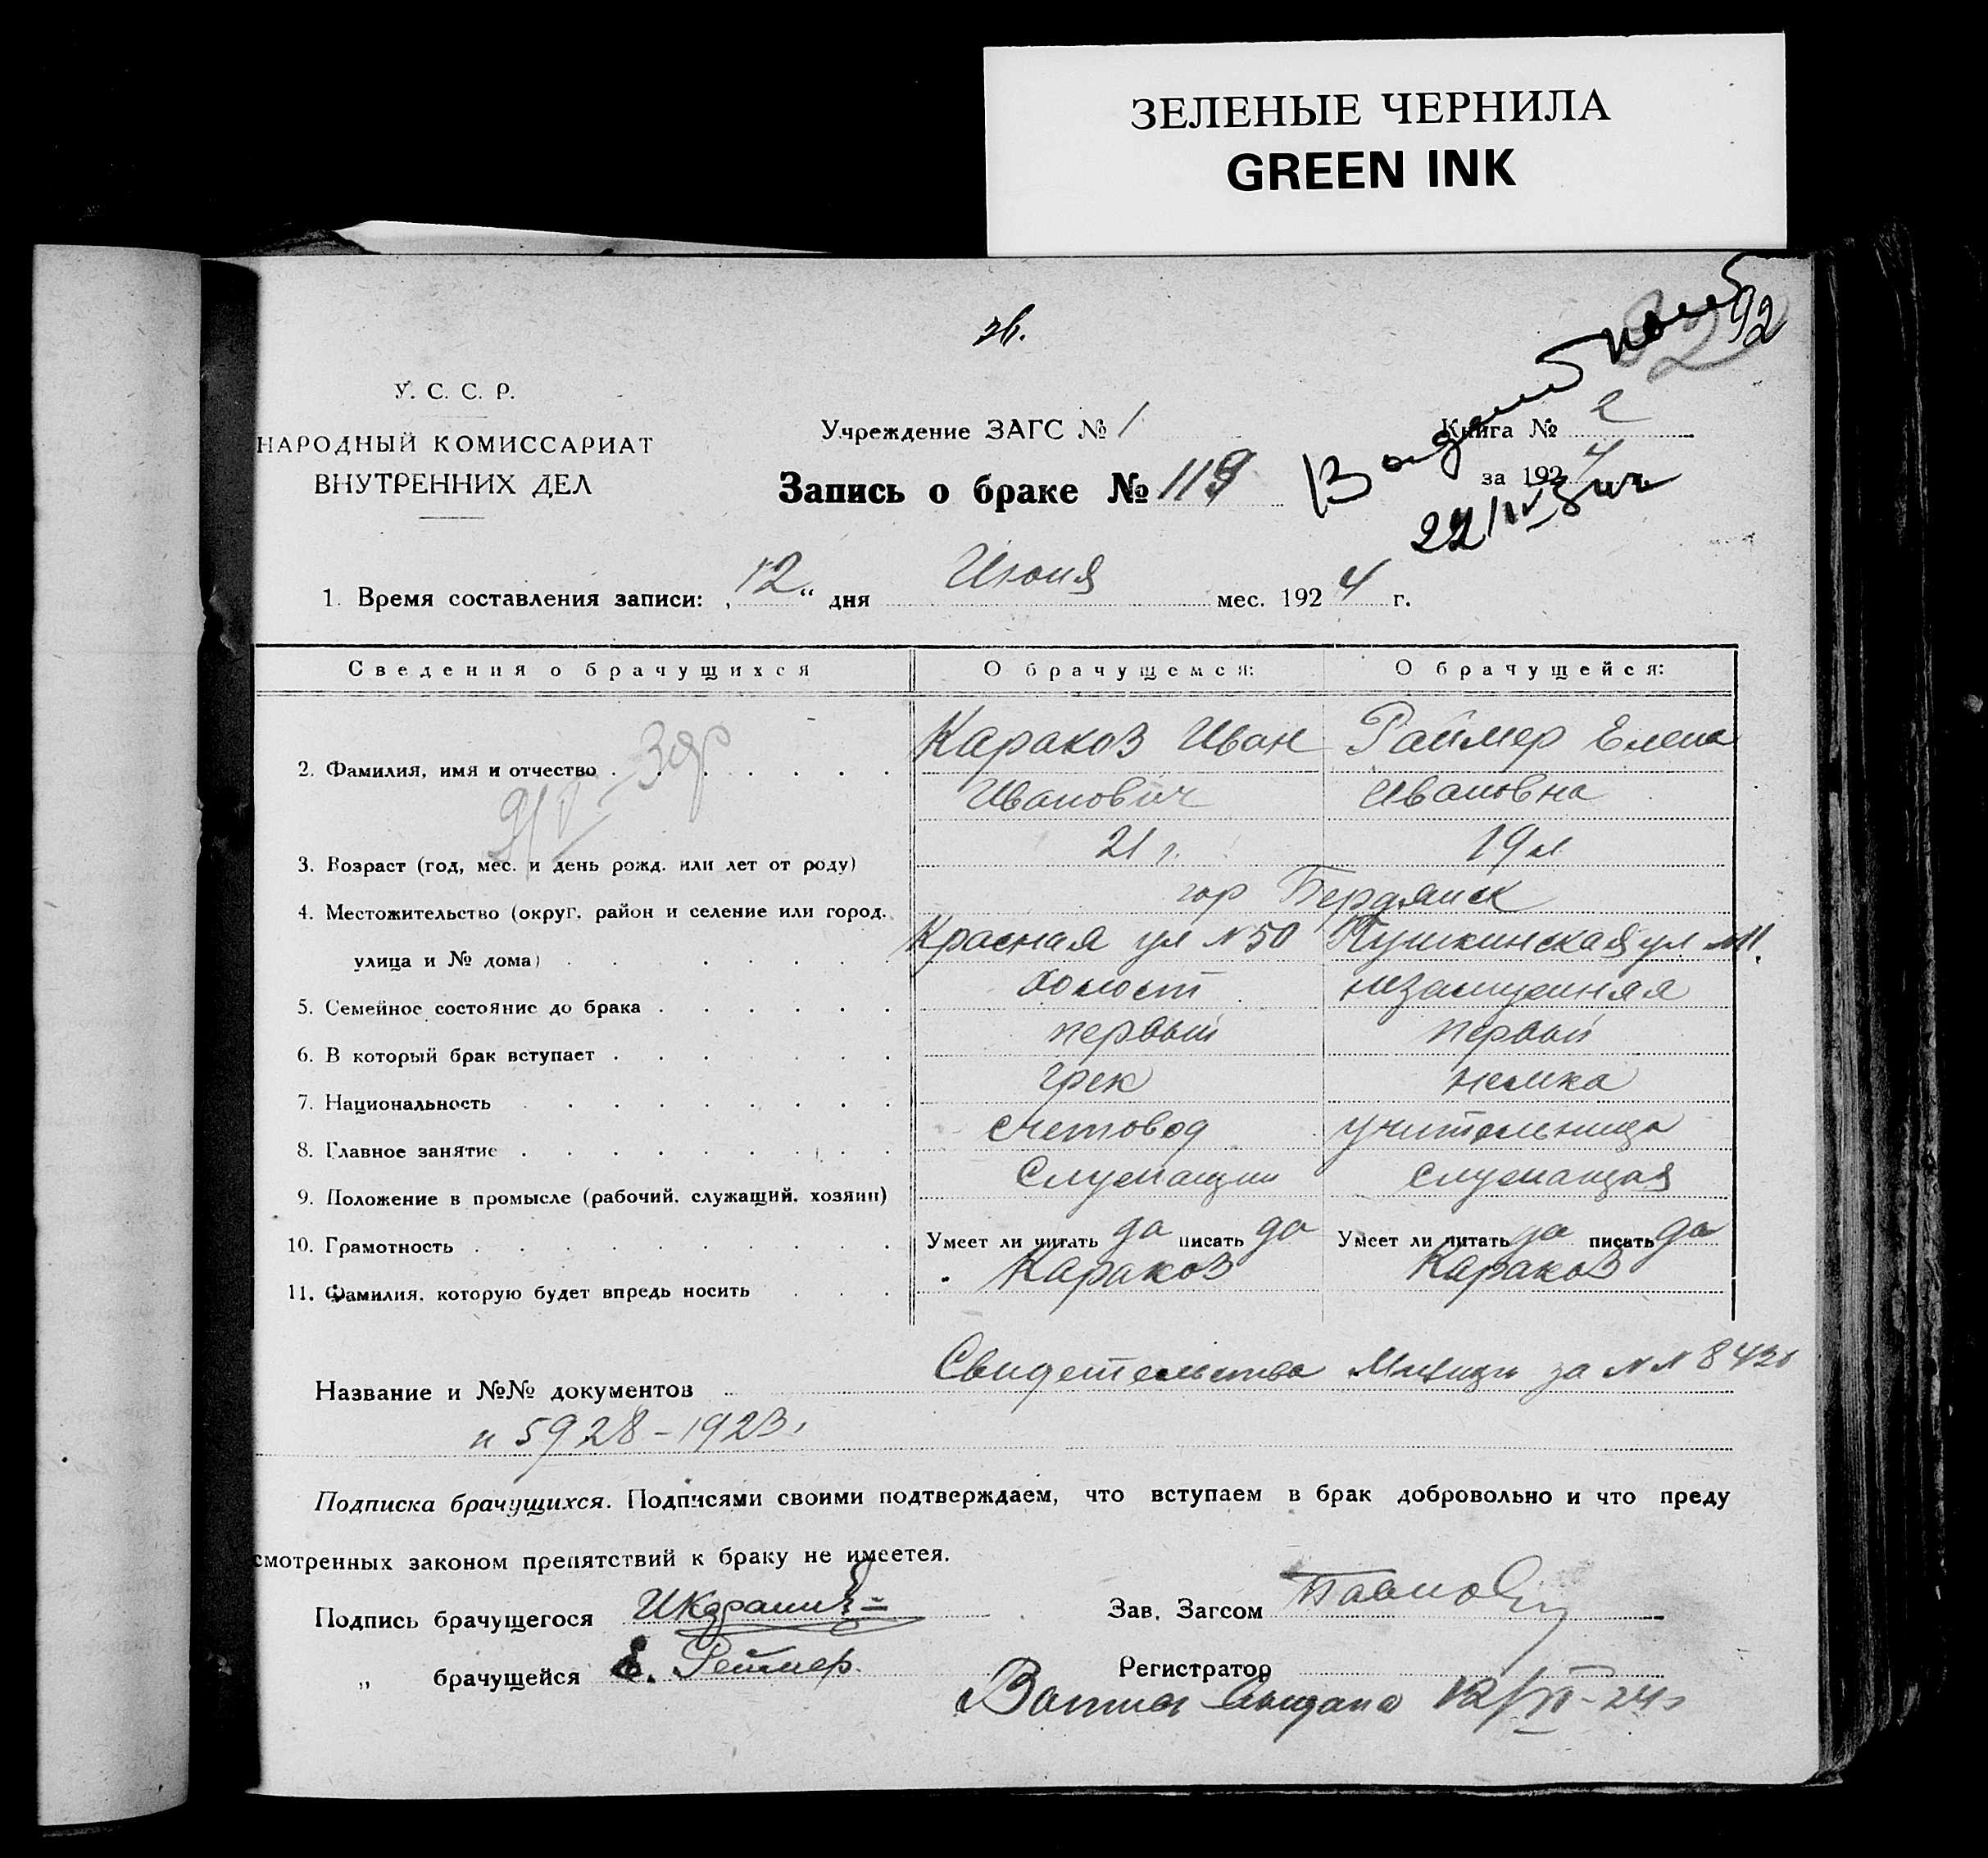 ЗЕЛЕНЫЕ ЧЕРНИЛА
GREEN INK
92
У. С. С. Р.
НАРОДНЫЙ КОМИССАРИАТ
ВНУТРЕННИХ ДЕЛ
Учреждение ЗАГС № 1
Книга № 2
за 1924
Запись о браке № 119
1. Время составления записи: „12“ дня Июня мес. 1924 г.
Сведения о брачущихся О брачущемся: О брачущейся:
2. Фамилия, имя и отчество Караков Иван Раймер Елена
Иванович Ивановна
3. Возраст (год, мес. и день рожд. или лет от роду) 21 г. 19 л
4. Местожительство (округ, район и селение или город, гор Бердянск
улица и № дома) Красная ул N 50 Пушкинская ул N 11.
5. Семейное состояние до брака холост незамужняя
6. В который брак вступает первый первый
7. Национальность грек немка
8. Главное занятие счетовод учительница
9. Положение в промысле (рабочий, служащий, хозяин) Служащий служащая
10. Грамотность Умеет ли читать да писать да Умеет ли читать да писать да
11. Фамилия, которую будет впредь носить Караков Караков
Название и №№ документов Свидетельства Милиции за N N 8420
и 5928-1923г
Подписка брачущихся. Подписями своими подтверждаем, что вступаем в брак добровольно и что преду
смотренных законом препятствий к браку не имеется.
Подпись брачущегося Зав. Загсом
„ брачущейся Е. Реймер. Регистратор
12/VI-24г